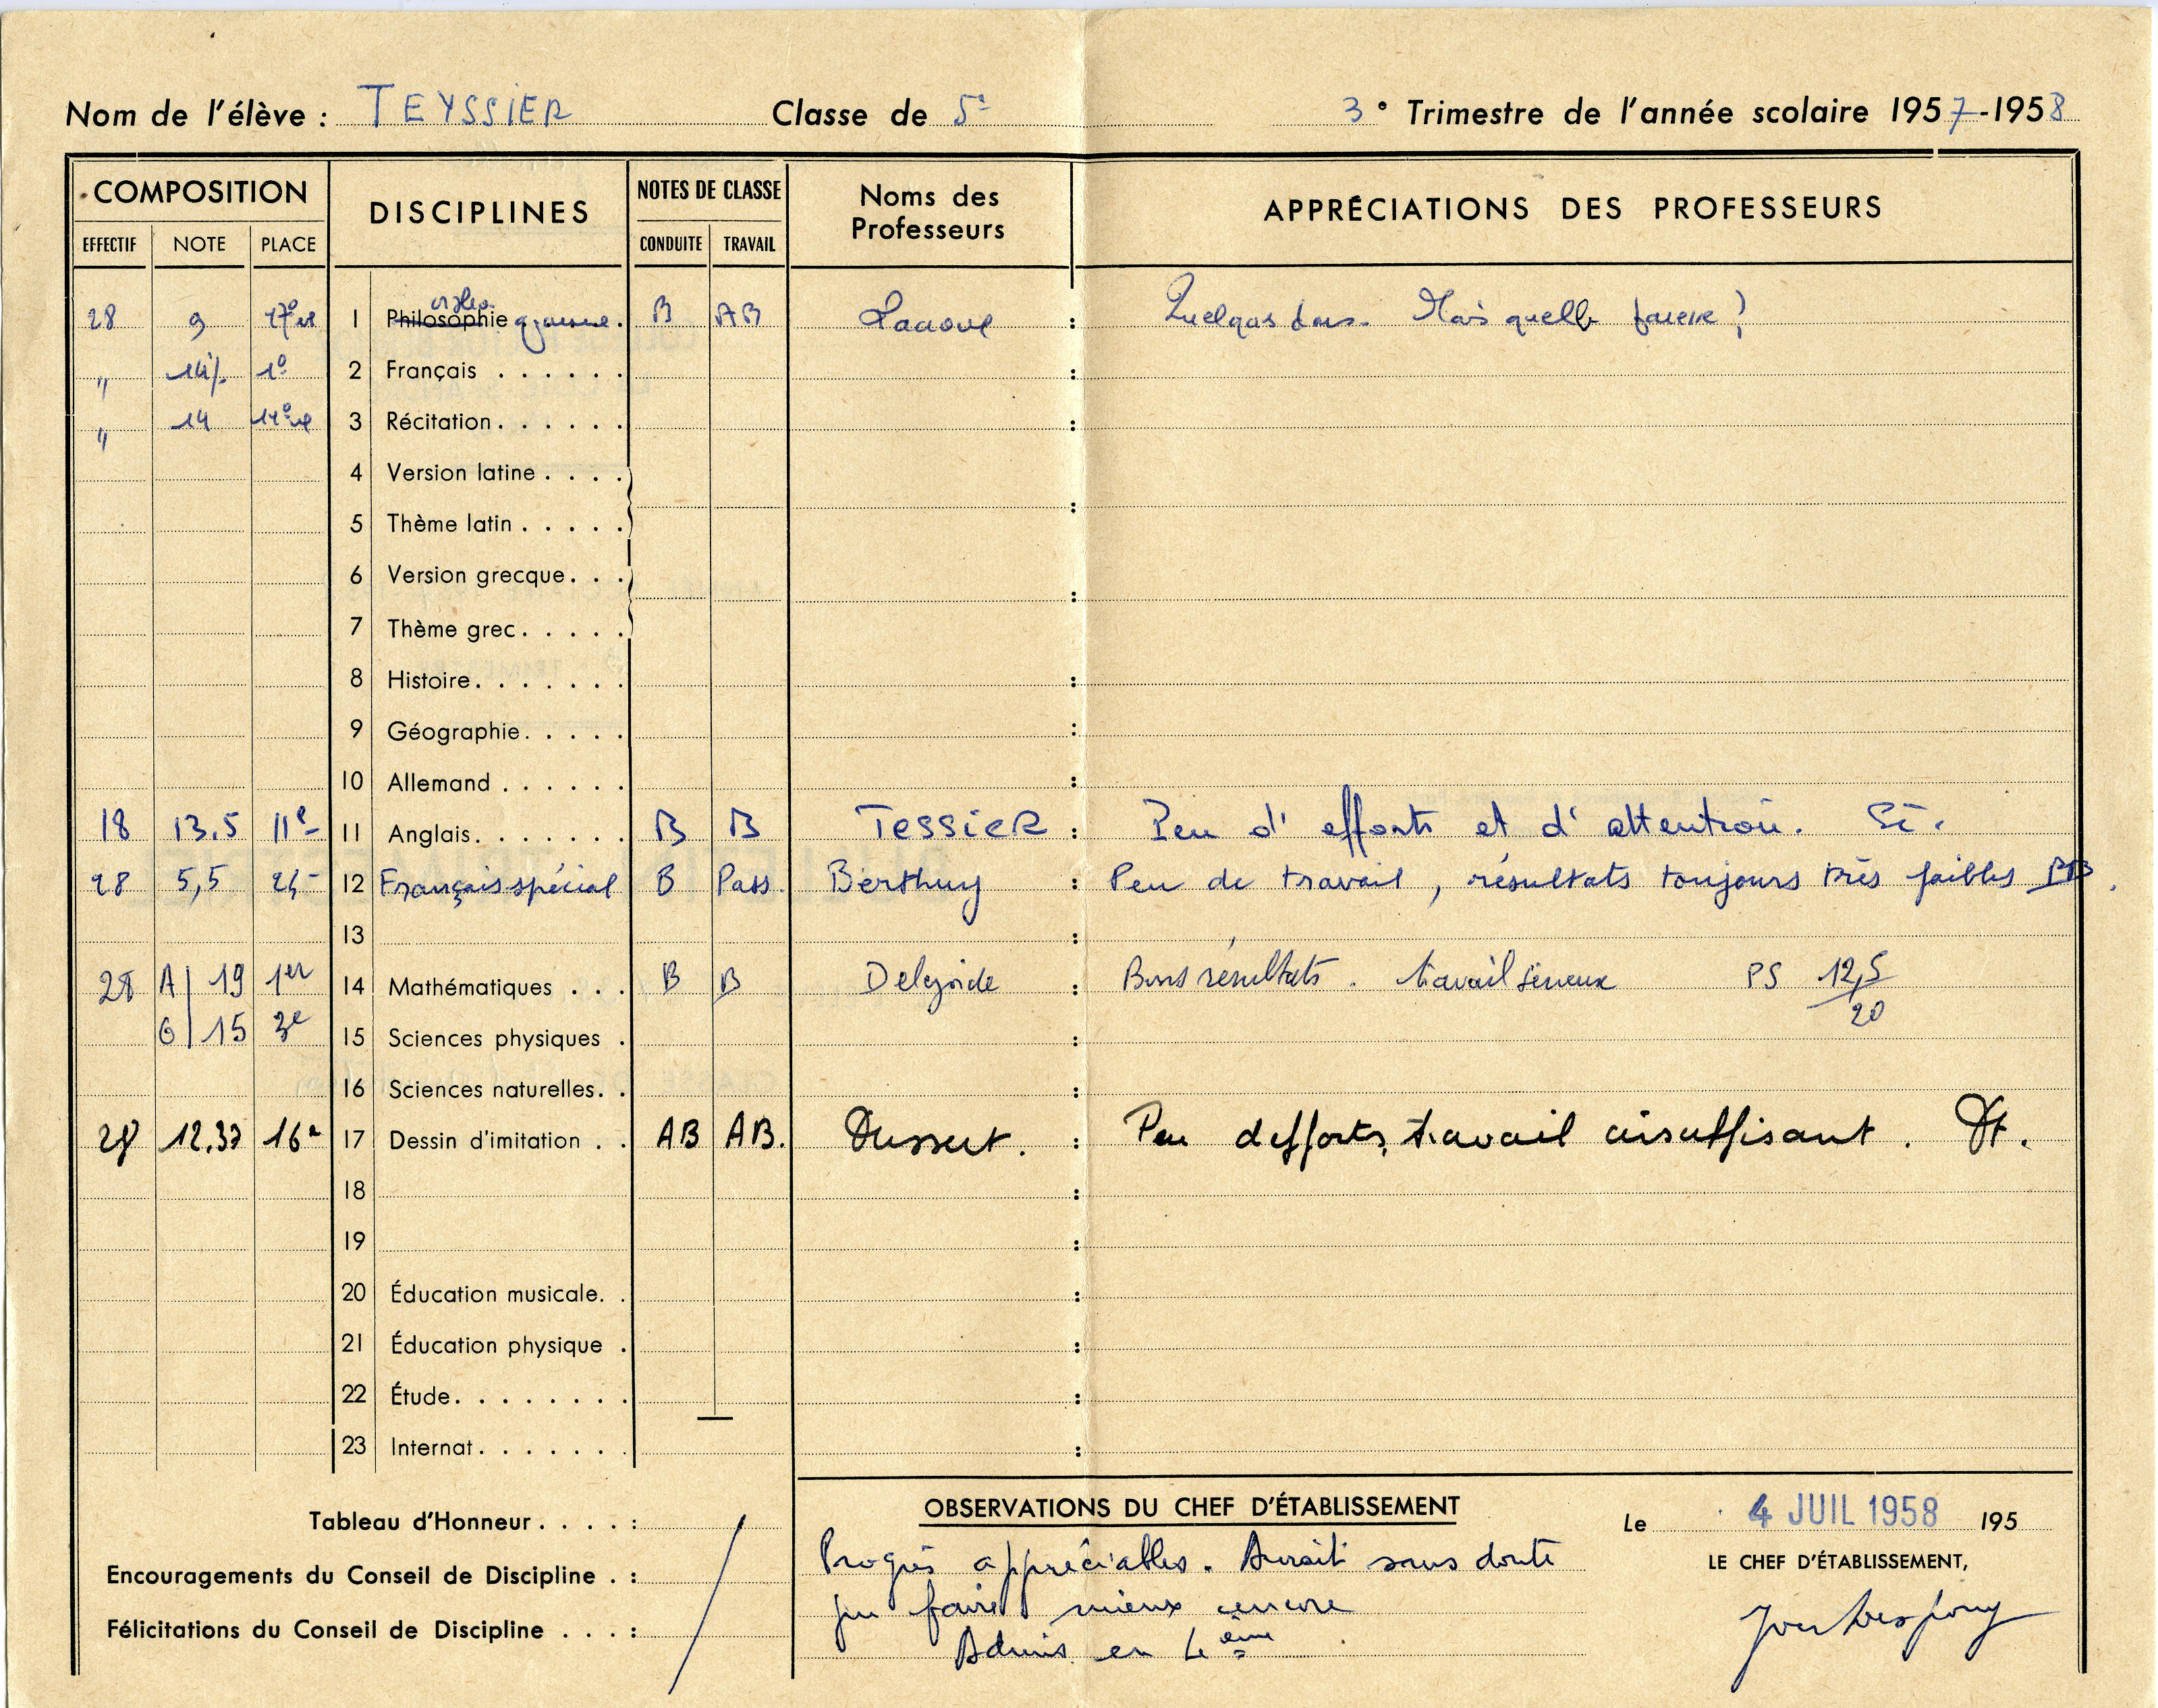 Nom de l'élève : TEYSSIER Classe de 5e 3° Trimestre de l'année scolaire 1957-1958
COMPOSITION DISCIPLINES NOTES DE CLASSE Noms des Professeurs APPRÉCIATIONS DES PROFESSEURS
EFFECTIF NOTE PLACE CONDUITE TRAVAIL
28 9 17e 1 Philosophie ortho. B AB : Quelques dons. Mais quelle !
" 14 1/2 1e 2 Français . . . . . . :
" 14 14e 3 Récitation . . . . . . :
4 Version latine . . . .
5 Thème latin . . . . . :
6 Version grecque . . . :
7 Thème grec . . . . .
8 Histoire . . . . . . . :
9 Géographie . . . . . :
10 Allemand . . . . . . :
18 13.5 11e 11 Anglais . . . . . . B B TESSIER : Peu d'efforts et d'attention.
28 5,5 12 Français spécial B Pass. Berthuy : Peu de travail, résultats toujours très faibles
13 :
28 A 19 1er 14 Mathématiques . . . B B : Bons résultats. travail sérieux PS 12,5/20
G 15 3e 15 Sciences physiques . :
16 Sciences naturelles . . :
28 12.37 16e 17 Dessin d'imitation . . AB AB. Dussert. : Peu d'efforts, travail insuffisant. Dt.
18 :
19 :
20 Éducation musicale . . :
21 Éducation physique . :
22 Étude . . . . . . . . :
23 Internat . . . . . . . :
Tableau d'Honneur . . . . :
Encouragements du Conseil de Discipline . :
Félicitations du Conseil de Discipline . . . :
OBSERVATIONS DU CHEF D'ÉTABLISSEMENT
Progrès appréciables. Aurait sans doute
pu faire mieux encore
Admis en 4ème
Le 4 JUIL 1958 195
LE CHEF D'ÉTABLISSEMENT,